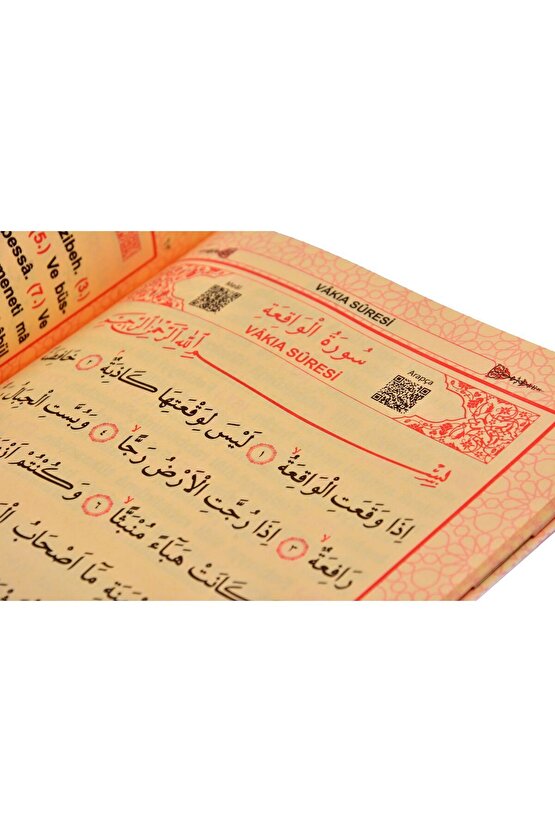 zibeh. (3.)
(5.) Ve büs-
bessâ. (7.) Ve
meneti mâ
VÂKIA SÛRESİ
Meâli
سُورَةُ الْوَاقِعَةِ
VÂKIA SÛRESİ
Arapça
بِسْمِ اللّٰهِ الرَّحْمٰنِ الرَّحِيمِ
اِذَا وَقَعَتِ الْوَاقِعَةُ ﴿١﴾ لَيْسَ لِوَقْعَتِهَا كَاذِبَةٌ ﴿٢﴾ خَافِضَةٌ
رَافِعَةٌ ﴿٣﴾ اِذَا رُجَّتِ الْاَرْضُ رَجًّا ﴿٤﴾ وَبُسَّتِ الْجِبَالُ
كَانَتْ هَبَاءً مُنْبَثًّا ﴿٦﴾ وَكُنْتُمْ
مَا اَصْحَابُ